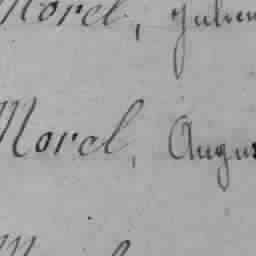 Morel, Julien
Morel, Augus